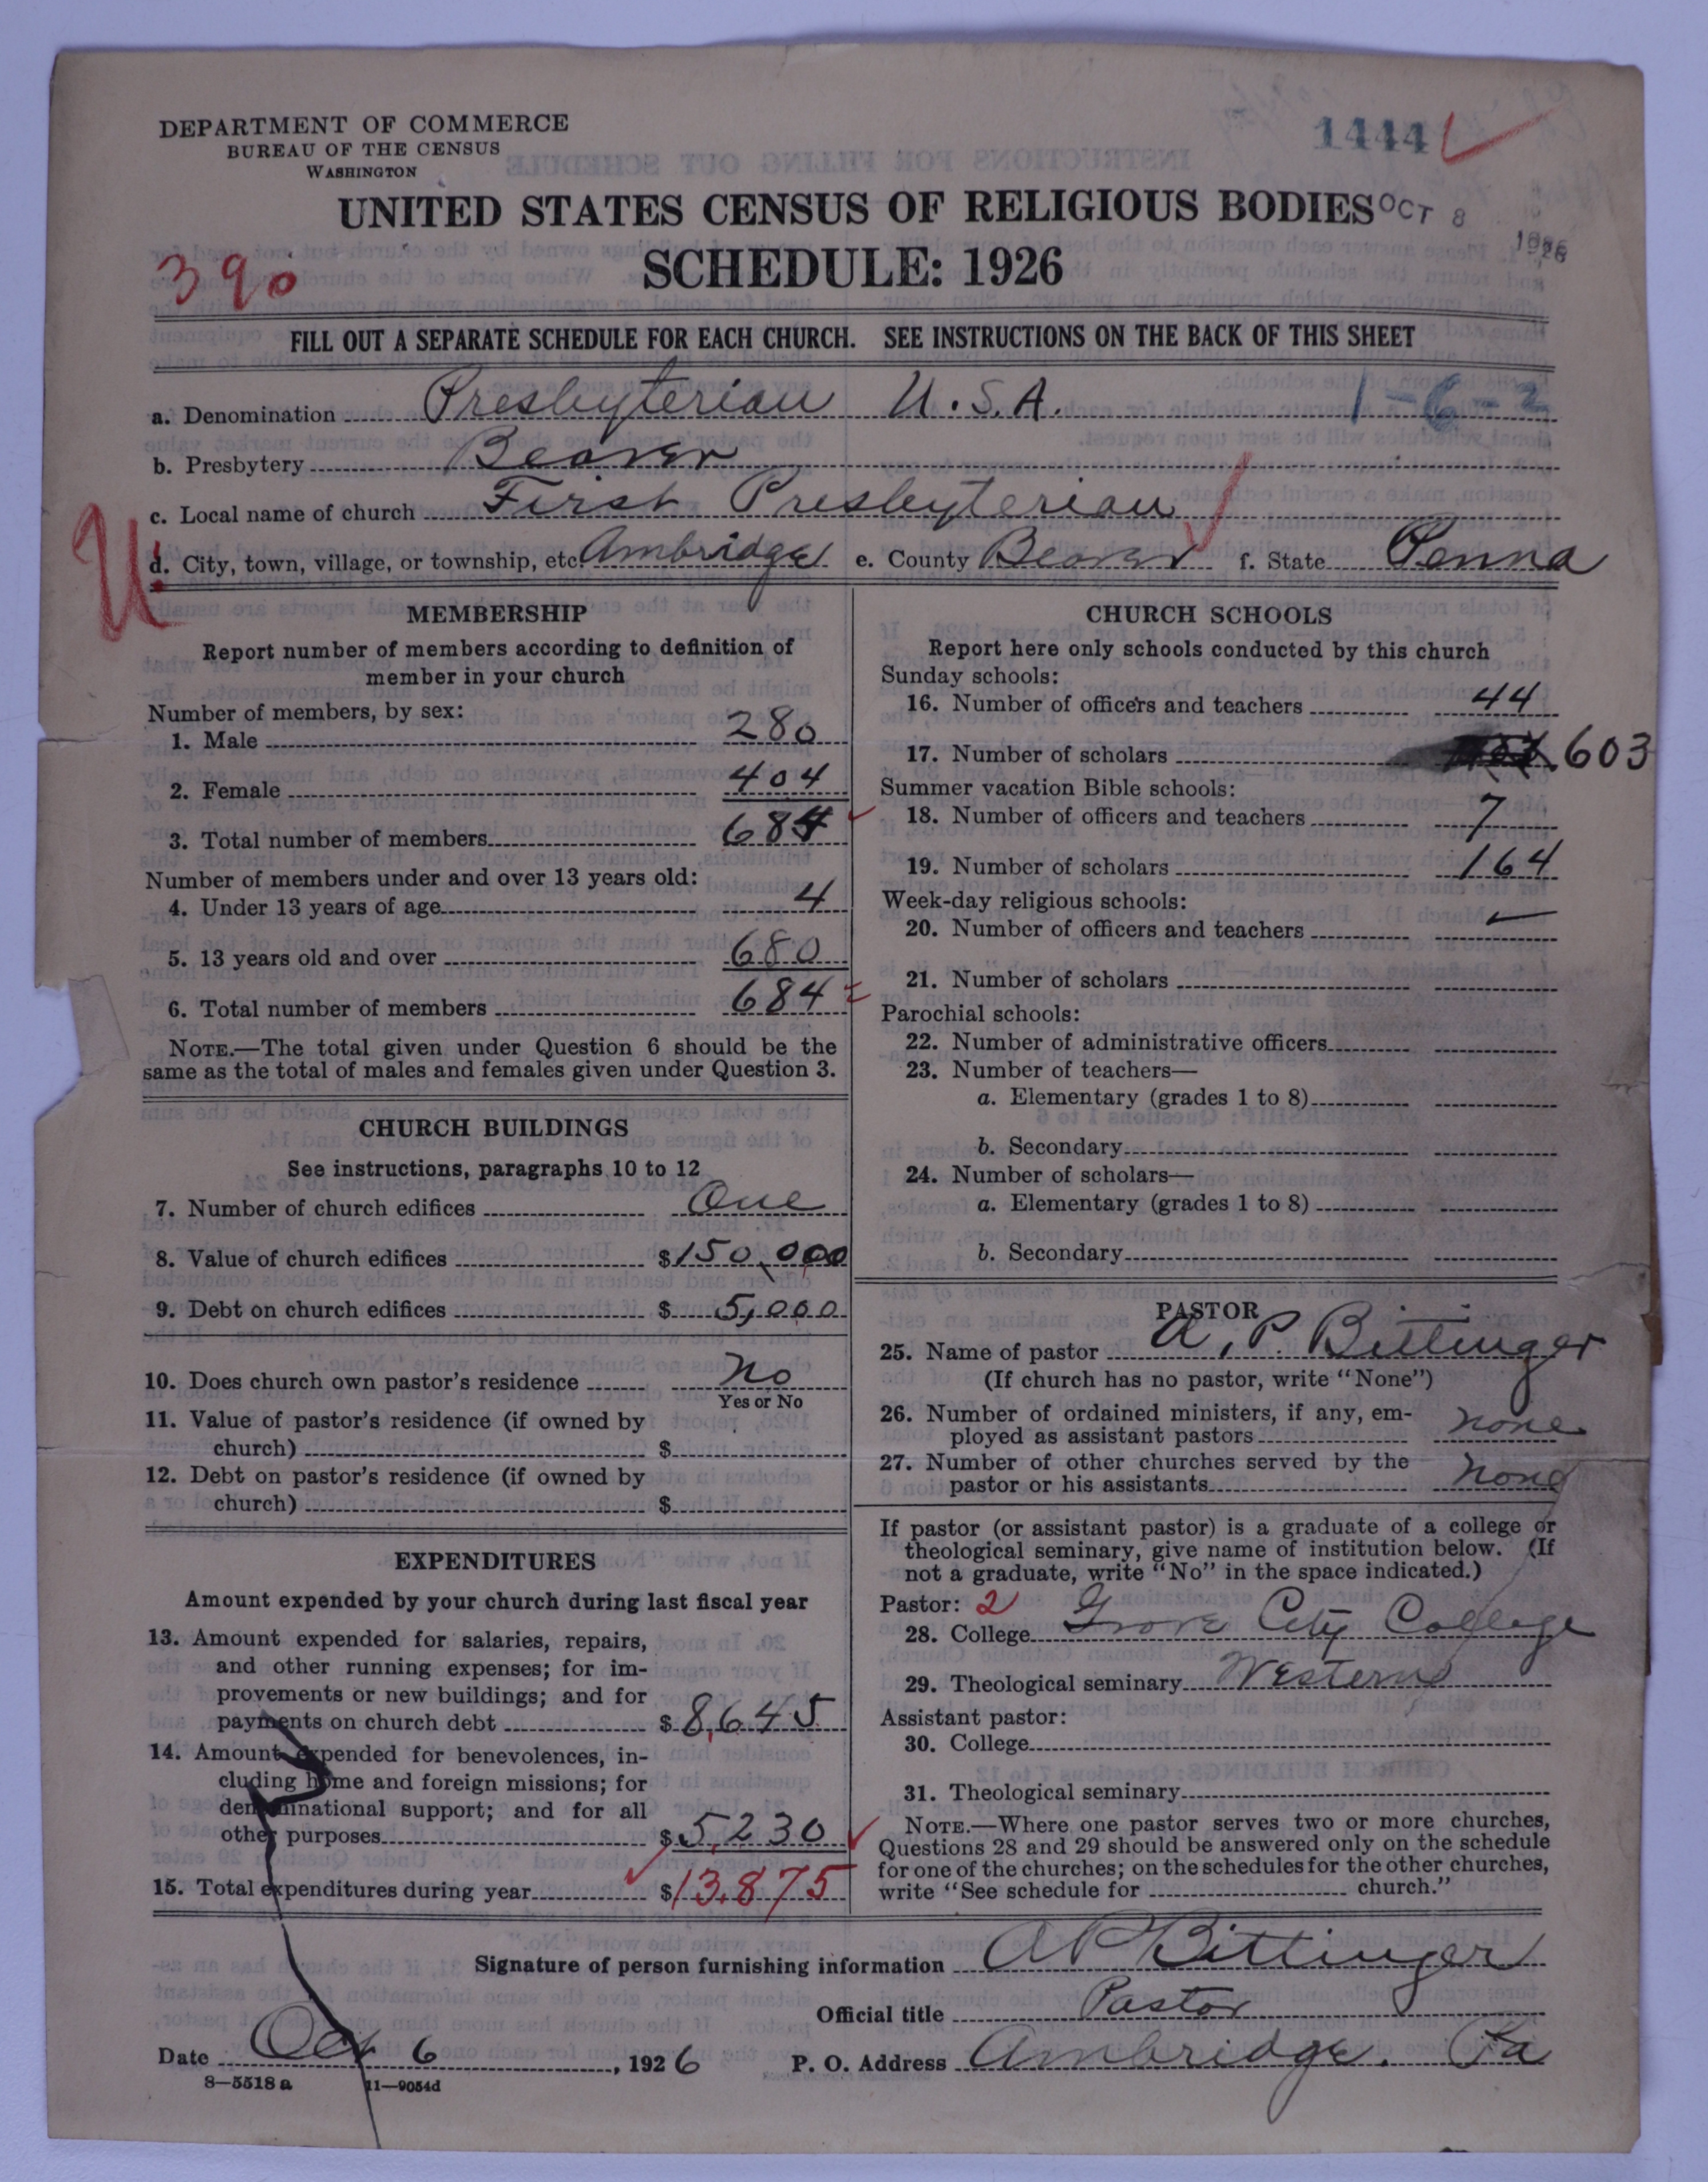 DEPARTMENT OF COMMERCE
BUREAU OF THE CENSUS
WASHINGTON
1444
UNITED STATES CENSUS OF RELIGIOUS BODIES
OCT 8 1926
SCHEDULE: 1926
390
FILL OUT A SEPARATE SCHEDULE FOR EACH CHURCH. SEE INSTRUCTIONS ON THE BACK OF THIS SHEET
a. Denomination Presbyterian U.S.A. 1-6-2
b. Presbytery Beaver
c. Local name of church First Presbyterian
U
d. City, town, village, or township, etc. Ambridge e. County Beaver f. State Penna
MEMBERSHIP
Report number of members according to definition of
member in your church
Number of members, by sex:
1. Male 280
2. Female 404
3. Total number of members 684
Number of members under and over 13 years old:
4. Under 13 years of age 4
5. 13 years old and over 680
6. Total number of members 684
NOTE.—The total given under Question 6 should be the
same as the total of males and females given under Question 3.
CHURCH BUILDINGS
See instructions, paragraphs 10 to 12
7. Number of church edifices One
8. Value of church edifices $150,000
9. Debt on church edifices $5,000
10. Does church own pastor's residence No
Yes or No
11. Value of pastor's residence (if owned by
church) $
12. Debt on pastor's residence (if owned by
church) $
EXPENDITURES
Amount expended by your church during last fiscal year
13. Amount expended for salaries, repairs,
and other running expenses; for im-
provements or new buildings; and for
payments on church debt $8,645
14. Amount expended for benevolences, in-
cluding home and foreign missions; for
denominational support; and for all
other purposes $5,230
15. Total expenditures during year $13,875
CHURCH SCHOOLS
Report here only schools conducted by this church
Sunday schools:
16. Number of officers and teachers 44
17. Number of scholars 603
Summer vacation Bible schools:
18. Number of officers and teachers 7
19. Number of scholars 164
Week-day religious schools:
20. Number of officers and teachers —
21. Number of scholars
Parochial schools:
22. Number of administrative officers
23. Number of teachers—
a. Elementary (grades 1 to 8)
b. Secondary
24. Number of scholars—
a. Elementary (grades 1 to 8)
b. Secondary
PASTOR
25. Name of pastor A. P. Bittinger
(If church has no pastor, write "None")
26. Number of ordained ministers, if any, em-
ployed as assistant pastors none
27. Number of other churches served by the
pastor or his assistants none
If pastor (or assistant pastor) is a graduate of a college or
theological seminary, give name of institution below. (If
not a graduate, write "No" in the space indicated.)
Pastor: 2
28. College Grove City College
29. Theological seminary Western
Assistant pastor:
30. College
31. Theological seminary
NOTE.—Where one pastor serves two or more churches,
Questions 28 and 29 should be answered only on the schedule
for one of the churches; on the schedules for the other churches,
write "See schedule for church."
Signature of person furnishing information A P Bittinger
Official title Pastor
Date Oct 6, 1926 P. O. Address Ambridge. Pa
8—5518 a 11—9054d